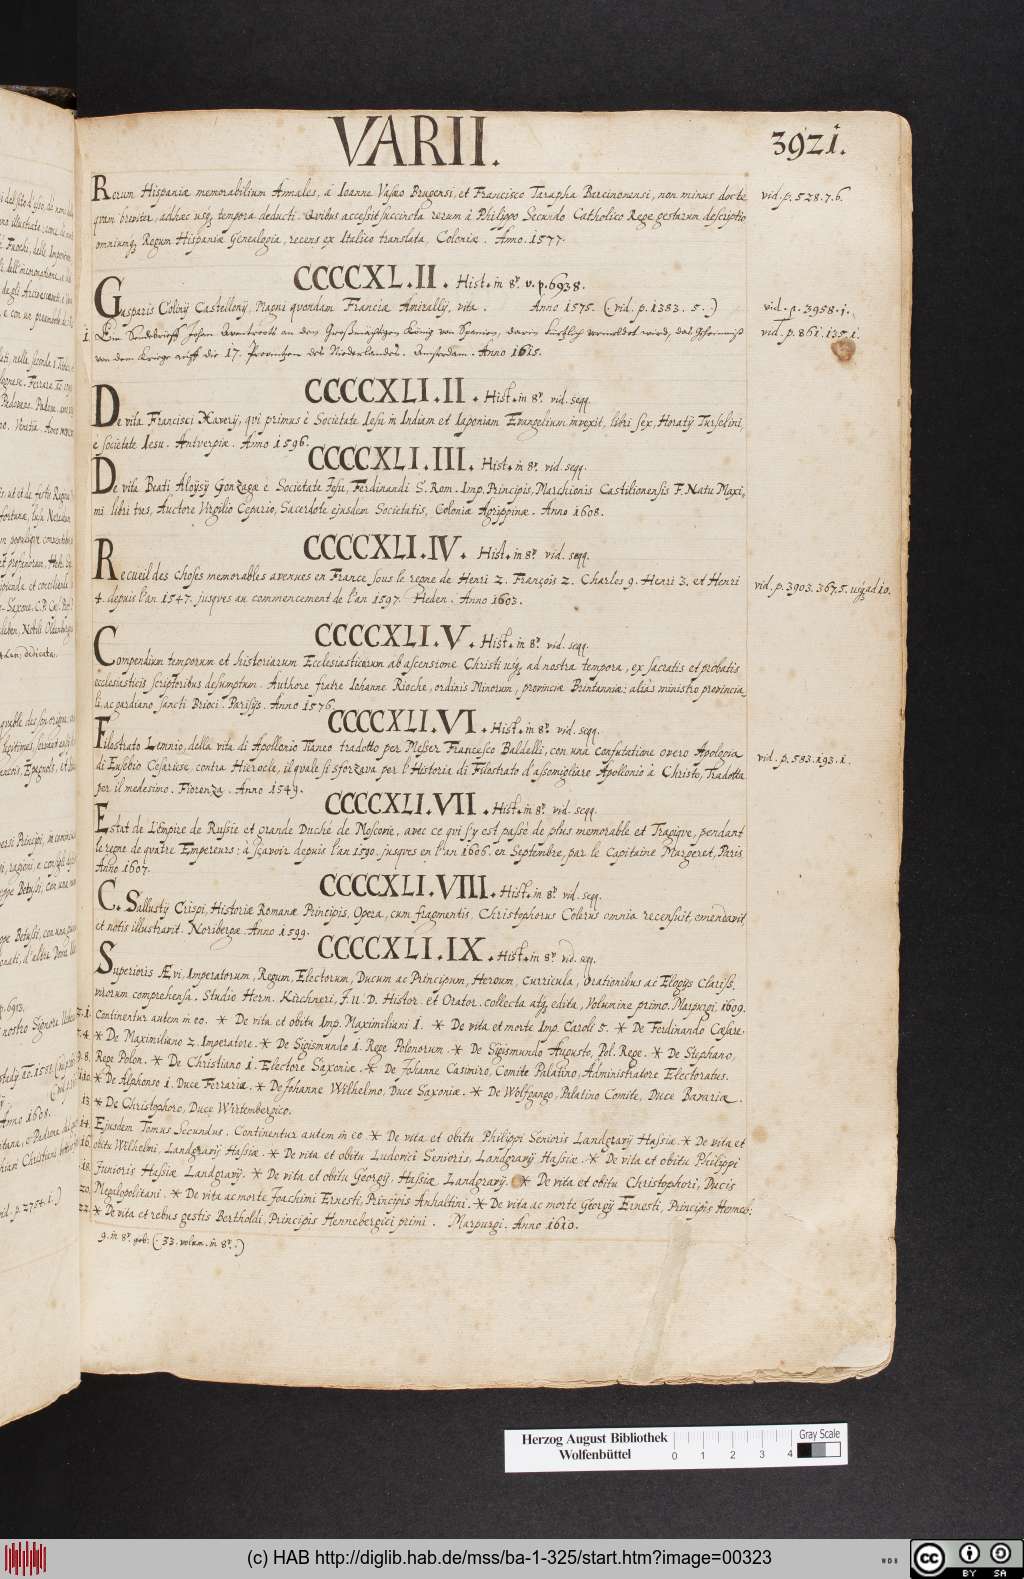 VARII.
3921.
Rerum Hispaniæ memorabilium Annales, à Ioanne Vasæo Brugensi, et Francisco Tarapha Barcinonensi, non minus docte
vid. p. 528. 7. 6.
quam breviter, adhæc usq; tempora deducti. Quibus accessit succincta rerum à Philippo Secundo Catholico Rege gestarum descriptio
omniumq; Regum Hispaniæ Genealogia, recens ex Italico translata, Coloniæ. Anno. 1577.
CCCCXL.II. Hist. in 8º. v. p. 6938.
Gasparis Colinij Castellonij, Magni quondam Franciæ Amirallij, vita. Anno 1575. (. vid. p. 1383. 5. .)
vid. p. 3958. 1.
1. Ein Sendebrieff Johan Aventroots an den Großmächtigen König von Spanien, darin kürtzlich vermeldet wird, das Geheimniß
vid. p. 861. 135. 1.
von dem Kriege auff die 17. Provintzen des Niederlandes. Amsterdam. Anno 1615.
CCCCXLI.II. Hist. in 8º. vid. seqq.
De vita Francisci Xaverij, qvi primus è Societate Iesu in Indiam et Iaponiam Evangelium invexit, libri sex, Horatij Turselini,
è societate Iesu. Antverpiæ. Anno 1596.
CCCCXLI.III. Hist. in 8º. vid. seqq.
De vita Beati Aloÿsij Gonzagæ è Societate Jesu, Ferdinandi S. Rom. Imp. Principis, Marchionis Castilionensis F. Natu Maxi-
mi libri tres, Auctore Virgilio Cepario, Sacerdote ejusdem Societatis, Coloniæ Agrippinæ. Anno 1608.
CCCCXLI.IV. Hist. in 8º. vid. seqq.
Recueil des choses memorables avenues en France sous le regne de Henri 2. François 2. Charles 9. Henri 3. et Henri
vid. p. 3903. 367. 5. usq; ad 10.
4. depuis l'an 1547. jusques au commencement de l'an 1597. Heden. Anno 1603.
CCCCXLI.V. Hist. in 8º. vid. seqq.
Compendium temporum et historiarum Ecclesiasticarum ab ascensione Christi usq; ad nostra tempora, ex sacratis et probatis
ecclesiasticis scriptoribus desumptum. Authore fratre Iohanne Rioche, ordinis Minorum, provinciæ Brintanniæ: aliàs ministro provincia
li, ac gardiano sancti Brioci. Parisijs. Anno 1576.
CCCCXLI.VI. Hist. in 8º. vid. seqq.
Filostrato Lemnio, della vita di Apollonio Tianeo tradotto per Messer Francesco Baldelli, con una confutatione overo Apologia
vid. p. 583. 193. 1.
di Eusebio Cesariese, contra Hierocle, il quale si sforzava per l'Historia di Filostrato d'assomigliare Apollonio à Christo, Tradotta
per il medesimo. Fiorenza. Anno 1549.
CCCCXLI.VII. Hist. in 8º. vid. seqq.
Estat de l'Empire de Russie et grande Duché de Moscovie, avec ce qui s'y est passé de plus memorable et Tragique, pendant
le regne de quatre Empereurs: à sçavoir depuis l'an 1590. jusques en l'an 1606. en Septembre, par le Capitaine Margeret, Paris
Anno 1607.
CCCCXLI.VIII. Hist. in 8º. vid. seqq.
C. Sallustij Crispi, Historiæ Romanæ Principis, Opera, cum fragmentis. Christophorus Colerus omnia recensuit, emendavit
et notis illustravit. Noribergæ. Anno 1599.
CCCCXLI.IX. Hist. in 8º. vid. seq.
Superioris Ævi, Imperatorum, Regum, Electorum, Ducum ac Principum, Heroum, curricula, Orationibus ac Elogijs clariss.
virorum comprehensa. Studio Herm. Kirchneri, J. U. D. Histor. et Orator. collecta atq; edita, Volumine primo. Marpurgi. 1609.
Continentur autem in eo. * De vita et obitu Imp. Maximiliani 1. * De vita et morte Imp. Caroli 5. * De Ferdinando Cæsare.
* De Maximiliano 2. Imperatore. * De Sigismundo 1. Rege Polonorum. * De Sigismundo Augusto, Pol. Rege. * De Stephano,
Rege Polon. * De Christiano 1. Electore Saxoniæ. * De Johanne Casimiro, Comite Palatino, Administratore Electoratus.
* De Alphonso 1. Duce Ferrariæ. * De Johanne Wilhelmo, Duce Saxoniæ. * De Wolfgango, Palatino Comite, Duce Bavariæ.
13. * De Christophoro, Duce Wirtembergico.
14. Ejusdem Tomus Secundus. Continentur autem in eo * De vita et obitu Philippi Senioris Landgravij Hassiæ. * De vita et
16. obitu Wilhelmi, Landgravij Hassiæ. * De vita et obitu Ludovici Senioris, Landgravij Hassiæ. * De vita et obitu Philippi
18. Junioris Hassiæ Landgravij. * De vita et obitu Georgij, Hassiæ Landgravij. * De vita et obitu Christophori, Ducis
20. Megalopolitani. * De vita ac morte Joachimi Ernesti, Principis Anhaltini. * De vita ac morte Georgij Ernesti, Principis Henneb:
22. * De vita et rebus gestis Bertholdi, Principis Hennebergici primi. Marpurgi. Anno 1610.
9. in 8º. geb: (. 33. volum. in 8º. .)
Herzog August Bibliothek
Wolfenbüttel
0 1 2 3 4
Gray Scale
(c) HAB http://diglib.hab.de/mss/ba-1-325/start.htm?image=00323
WDB
cc BY SA